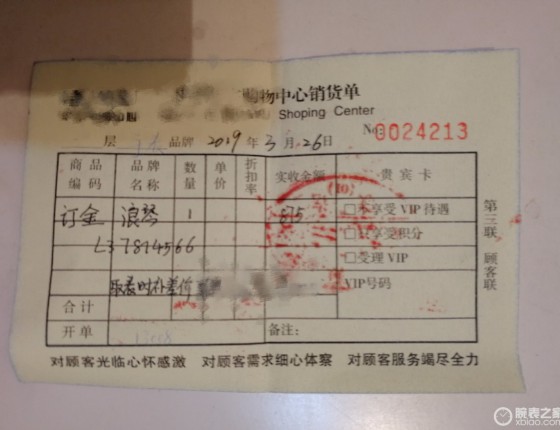 物中心销货单
Shoping Center
层 品牌 2019年3月26日 No 0024213
商品编码 品牌名称 数量 单价 折扣率 实收金额 贵宾卡
订金 浪琴 1 875 □不享受VIP待遇
L37814566 □只享受积分
□受理VIP
取表时补差价 VIP号码
合计
开单 备注:
第三联 顾客联
对顾客光临心怀感激 对顾客需求细心体察 对顾客服务竭尽全力
腕表之家
xbiao.com